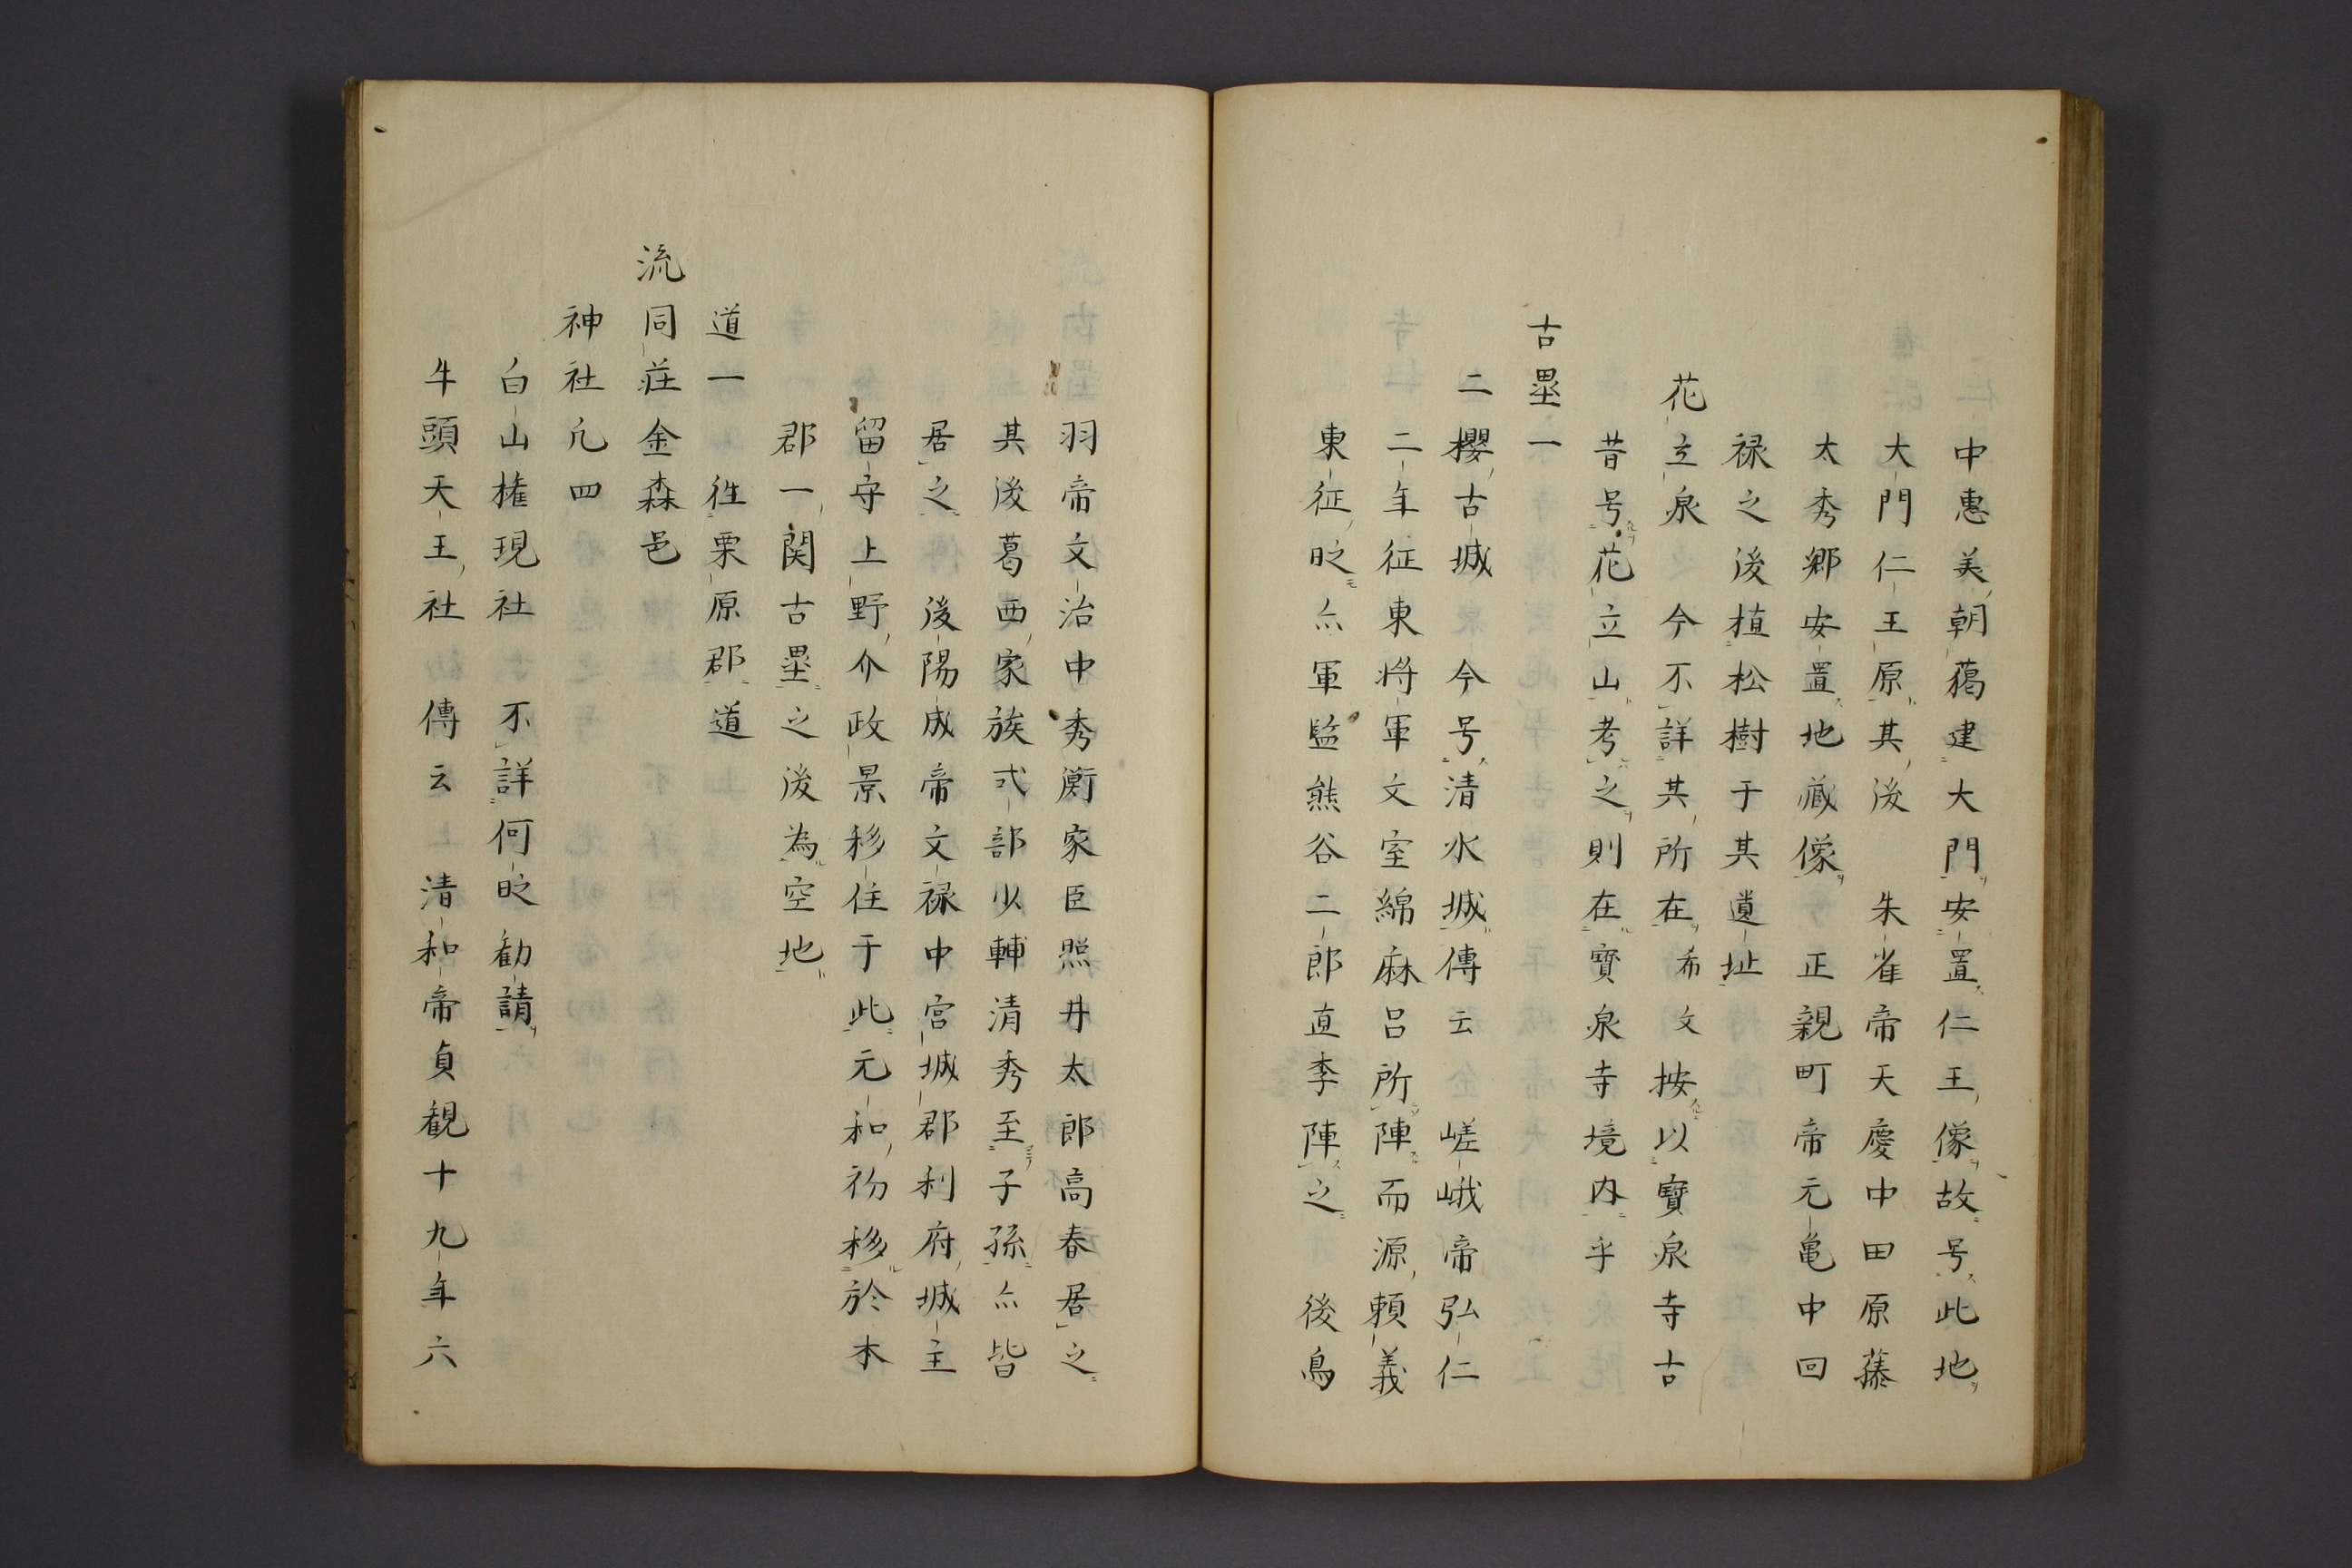 中惠美朝藦建大門安置仁王像故号此地
大門仁王原其後　朱雀帝天慶中田原藤
太秀郷安置地藏像　正親町帝元亀中回
禄之後植松樹于其遺址
花立泉　今不詳其所在 希文 按以寶泉寺古
昔号花立山考之則在寶泉寺境内乎
古壘一
二櫻古城　今号清水城傳云　嵯峨帝弘仁
二年征東将軍文室綿麻呂所陣而源頼義
東征时亦軍監熊谷二郎直季陣之　後鳥
羽帝文治中秀衡家臣照井太郎高春居之
其後葛西家族式部少輔清秀至子孫亦皆
居之　後陽成帝文禄中宮城郡利府城主
留守上野介政景移住于此元和初移於本
郡一関古壘之後為空地
道一　徃栗原郡道
流同荘金森邑
神社凢四
白山権現社　不詳何时勧請
牛頭天王社　傳云　清和帝貞観十九年六